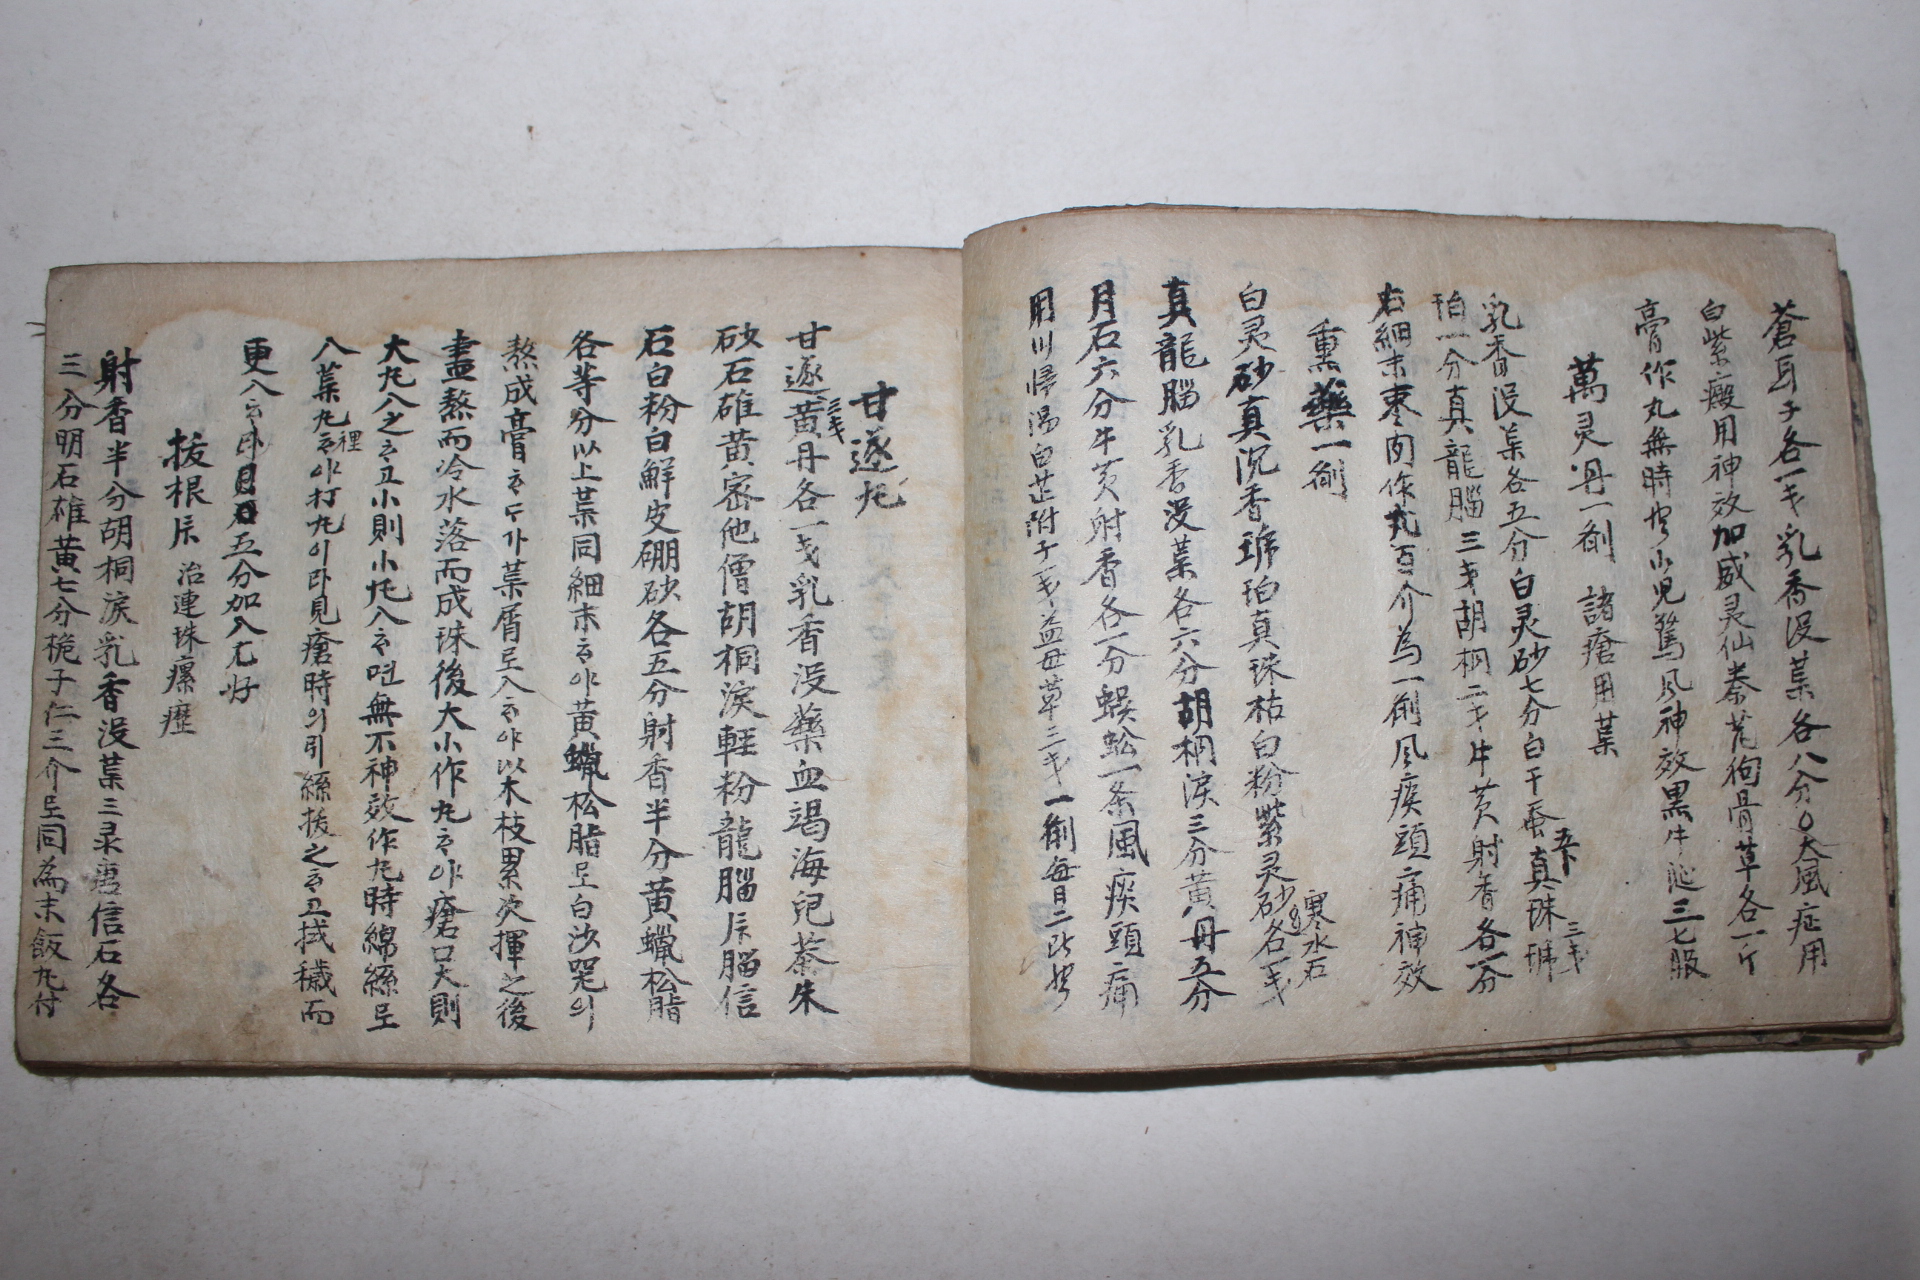 蒼耳子各一戋乳香没葉各八分○大風症用
白紫癜用神效加威灵仙秦艽狗骨草各一斤
膏作丸無時  小児驚風神效黒牛 三七服
萬灵丹一劑 諸瘡用葉
乳香没葉各五分白灵砂七分白干蚕 真珠 三戋琥
珀一分真龍腦三戋胡桐二戋牛黄射香各一分
右細末枣肉作丸百介為一劑風疾頭痛神效
熏藥一劑
白灵砂真沉香琥珀真珠枯白粉紫灵砂各一戋 寒水石
真龍腦乳香没葉各六分胡桐淚三分黄丹五分
月石六分牛黄射香各一分蜈蚣一条風疾頭痛
用川 湯白芷附子一戋益母草三戋一劑每日二
甘遂丸
甘遂三戋黄丹各一戋乳香没藥血竭海兒茶朱
砂石雄黄密他僧胡桐淚軽粉龍腦 腦信
石白粉白鮮皮硼砂各五分射香半分黄蠟松脂
各等分以上葉同細末ᄒᆞ야黄蠟松脂로白沙碗의
熬成膏ᄒᆞ다가葉屑로入ᄒᆞ야以木枝累次揮之後
盡熬而冷水落而成珠後大小作丸ᄒᆞ야瘡口大則
大丸入之ᄒᆞ고小則小丸入ᄒᆞ면無不神效作丸時綿絲로
入葉丸裡ᄒᆞ야打丸이라見瘡時의引絲拔之ᄒᆞ고拭穢而
更入ᄒᆞ라月石五分加入尤好
拔根 治連珠瘰癧
射香半分胡桐淚乳香没葉三彔唐信石各
三分明石雄黄七分梔子仁三介로同為末飯丸付